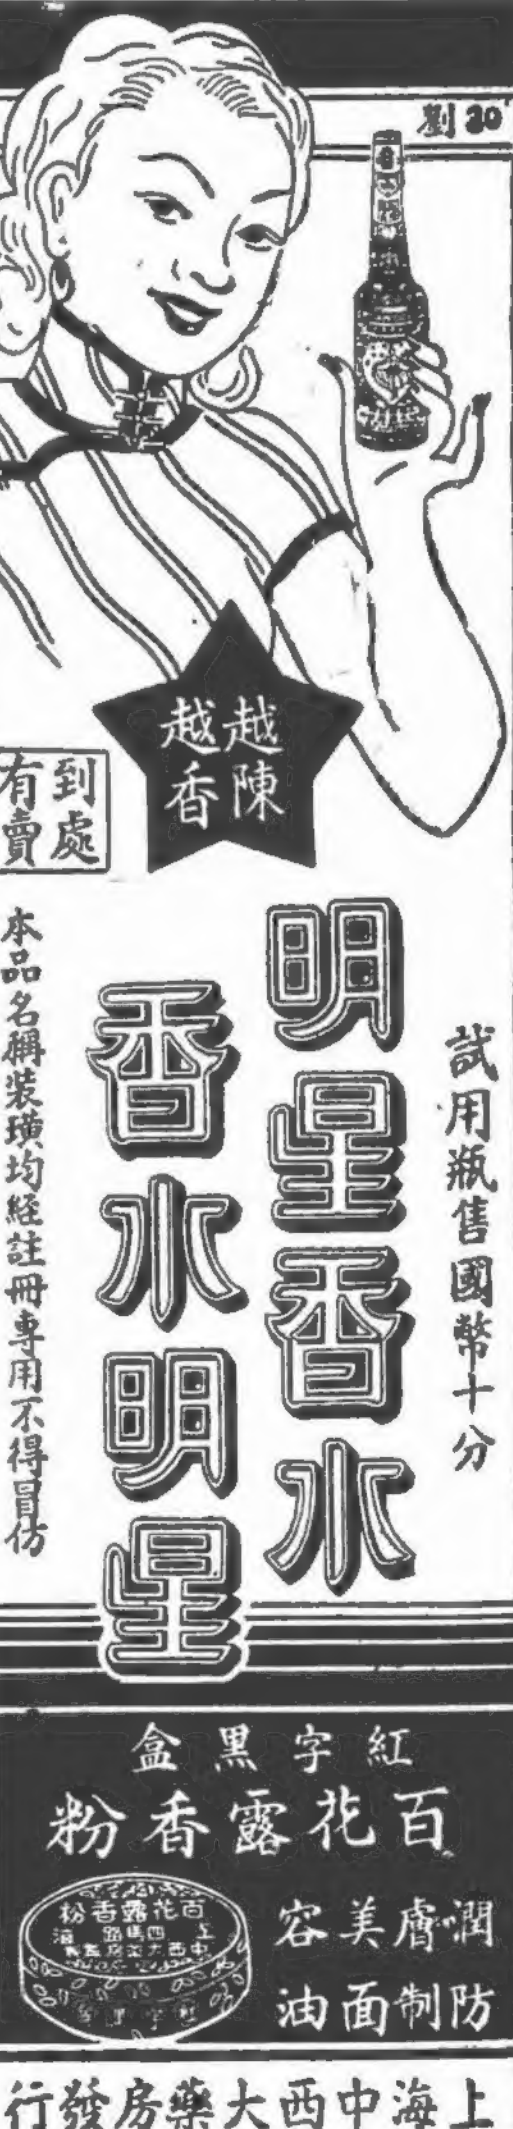 劉
越陳
越香
到處
有賣
試用瓶售國幣十分
明星香水
香水明星
本品名稱裝璜均經註冊專用不得冒仿
紅字黑盒
百花露香粉
潤膚美容
防制面油
百花露香粉
上海四馬路
中西大藥房
上海中西大藥房發行